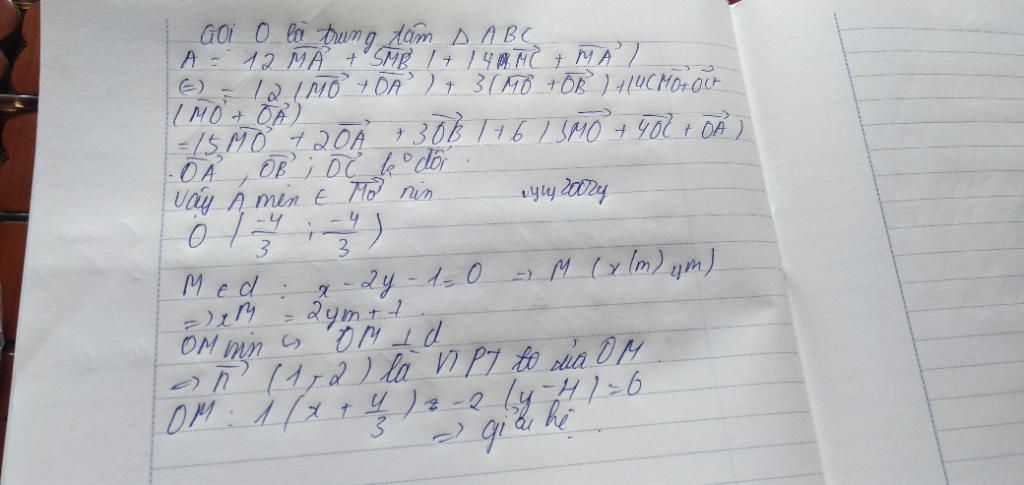 Gọi O là trung tâm Δ ABC
A = |2MA⃗ + 3MB⃗ | + |4MC⃗ + MA⃗ |
(=) = |2 (MO⃗ + OA⃗ ) + 3(MO⃗ + OB⃗ ) + |4(MO⃗ + OC⃗ +
(MO⃗ + OA⃗ )
= |5MO⃗ + 2OA⃗ + 3OB⃗ | + 6 | 5MO⃗ + 4OC⃗ + OA⃗ )
. OA⃗ , OB⃗ ; OC⃗ k° đổi .
Vậy A min MO⃗ min
O ( -4/3 ; -4/3 )
M ∈ d : x - 2y - 1 = 0 => M (x(m) ym)
=> xM = 2ym + 1
OM min OM ⊥ d
=> n⃗ (1, -2) là VTPT OM .
OM : 1 (x + 4/3 ) = -2 (y - 4) = 6
=> giải hệ .